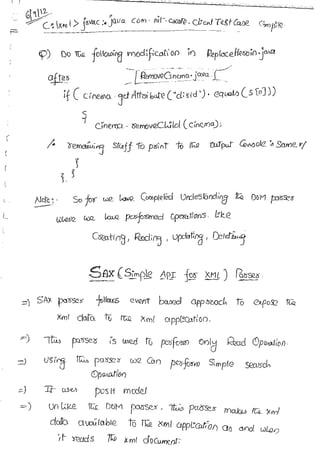 6/9/12
C:\xml> javac *.java com.nit.create.client TestCase Compile
Q) Do the following modification in ReplaceHeroin.java
after [RemoveCinema.java]
if ( cinema.getAttribute("disid").equals(s[0]))
{
cinema.removeChild (cinema);
/* remaining stuff to print to the output Console is Same */
}
}. }
Note:- So for we have Completed Understanding the DOM parser
where we have performed operations like
Creating, Reading, updating, Deleting
SAX (Simple API for XML) Parser
=) SAX parser follows event based approach to expose the
xml data to the xml application.
=) This parser is used to perform only Read Operation.
=) using this parser we can perform Simple search
Operation
=) It uses push model
=) Unlike the DOM parser, this parser makes the xml
data available to the xml application as and when
it reads the xml document.